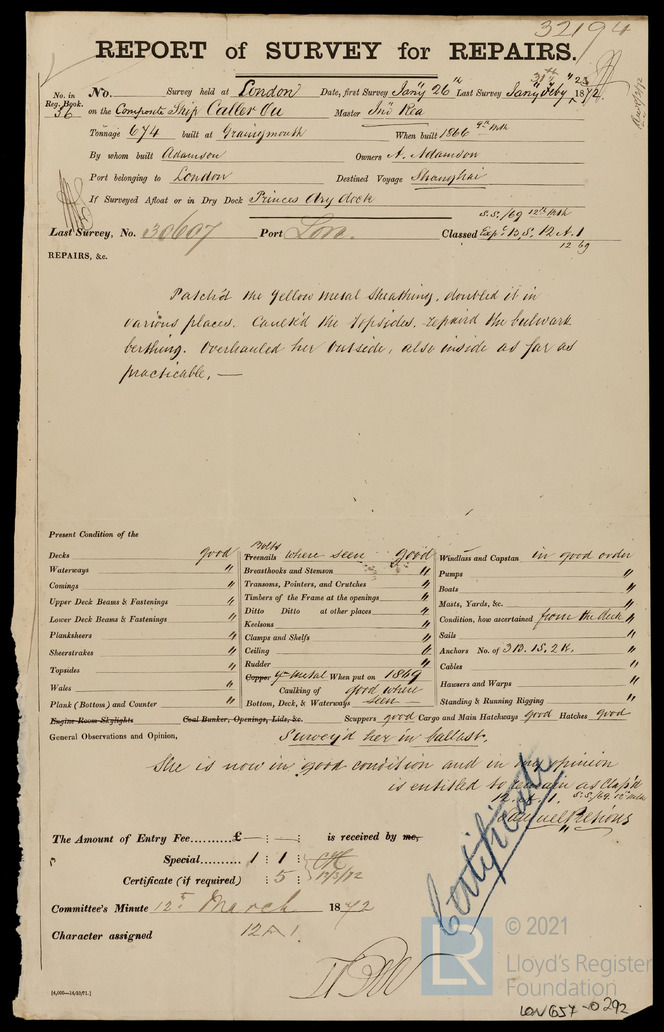 32194
REPORT of SURVEY for REPAIRS.
No. in Reg. Book. 36
No. Survey held at London Date, first Survey Jany 26th Last Survey Feby 23 1872
on the Composite Ship Caller Ou Master Jno Rea
Tonnage 674 built at Grangemouth When built 1866 9th Mth
By whom built Adamson Owners A. Adamson
Port belonging to London Destined Voyage Shanghai
If Surveyed Afloat or in Dry Dock Princes Dry dock
S.S./69 12th Mth
Last Survey, No. 30607 Port Lon. Classed Exp. B.S. 12 A.1
12 69
REPAIRS, &c.
Patch'd the Yellow Metal Sheathing, doubled it in
various places. Caulk'd the topsides. repaird the bulwark
berthing. Overhauled her Outside, also inside as far as
practicable. —
Present Condition of the
Decks good
Waterways "
Comings "
Upper Deck Beams & Fastenings "
Lower Deck Beams & Fastenings "
Planksheers "
Sheerstrakes "
Topsides "
Wales "
Plank (Bottom) and Counter "
Engine Room Skylights
Coal Bunker, Openings, Lids, &c.
Bolts
Treenails where seen good
Breasthooks and Stemson "
Transoms, Pointers, and Crutches "
Timbers of the Frame at the openings "
Ditto Ditto at other places "
Keelsons "
Clamps and Shelfs "
Ceiling "
Rudder "
Copper Y. Metal When put on 1869
Caulking of Bottom, Deck, & Waterways good where seen
Windlass and Capstan in good order
Pumps "
Boats "
Masts, Yards, &c. "
Condition, how ascertained from the deck "
Sails "
Anchors No. of 3B. 1S. 2K. "
Cables "
Hawsers and Warps "
Standing & Running Rigging "
Scuppers good Cargo and Main Hatchways good Hatches good
General Observations and Opinion,
Survey'd her in ballast.
She is now in good condition and in my opinion
is entitled to remain as Class'd
12. A. 1. S.S./69. 12th Mth
Certificate
The Amount of Entry Fee £ — : — : is received by me,
Special 1 : 1 :
Certificate (if required) : 5 : 12/3/72
Committee's Minute 12th March 1872
Character assigned 12A1.
[4,000—14/10/71.]
LR
© 2021
Lloyd's Register
Foundation
LON657-0292